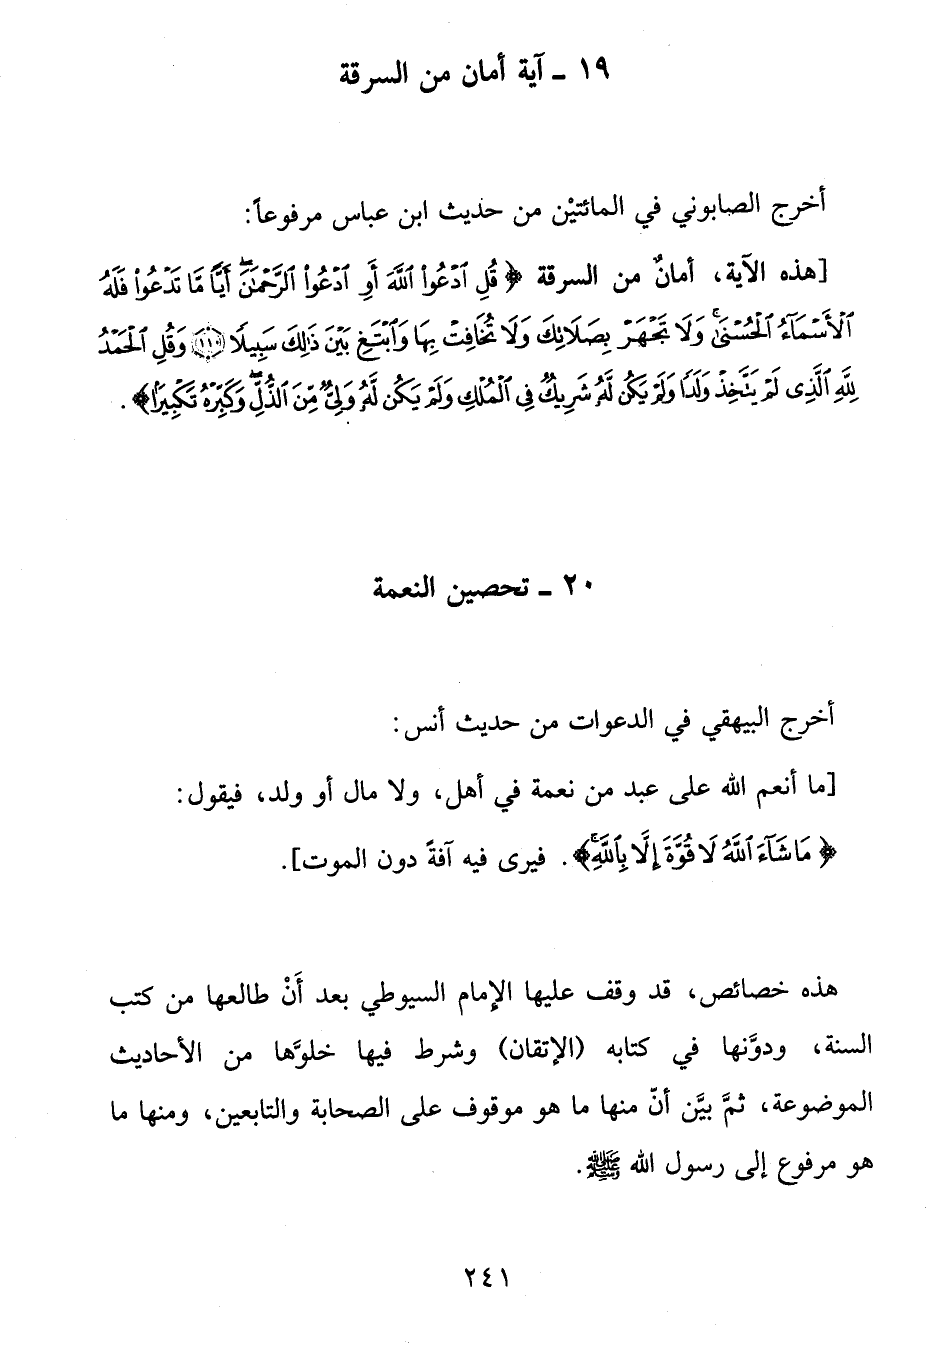 ١٩ ـ آية أمان من السرقة
أخرج الصابوني في المائتيْن من حديث ابن عباس مرفوعاً:
[هذه الآية، أمانٌ من السرقة ﴿قُلِ ٱدْعُوا۟ ٱللَّهَ أَوِ ٱدْعُوا۟ ٱلرَّحْمَـٰنَ ۖ أَيًّا مَّا تَدْعُوا۟ فَلَهُ
ٱلْأَسْمَآءُ ٱلْحُسْنَىٰ ۚ وَلَا تَجْهَرْ بِصَلَاتِكَ وَلَا تُخَافِتْ بِهَا وَٱبْتَغِ بَيْنَ ذَٰلِكَ سَبِيلًا ﴿١١٠﴾ وَقُلِ ٱلْحَمْدُ
لِلَّهِ ٱلَّذِى لَمْ يَتَّخِذْ وَلَدًا وَلَمْ يَكُن لَّهُۥ شَرِيكٌ فِى ٱلْمُلْكِ وَلَمْ يَكُن لَّهُۥ وَلِىٌّ مِّنَ ٱلذُّلِّ ۖ وَكَبِّرْهُ تَكْبِيرًا﴾.
٢٠ ـ تحصين النعمة
أخرج البيهقي في الدعوات من حديث أنس:
[ما أنعم الله على عبد من نعمة في أهل، ولا مال أو ولد، فيقول:
﴿مَا شَآءَ ٱللَّهُ لَا قُوَّةَ إِلَّا بِٱللَّهِ ۚ﴾. فيرى فيه آفةً دون الموت].
هذه خصائص، قد وقف عليها الإمام السيوطي بعد أَنْ طالعها من كتب
السنة، ودوَّنها في كتابه (الإتقان) وشرط فيها خلوَّها من الأحاديث
الموضوعة، ثمَّ بيَّن أنّ منها ما هو موقوف على الصحابة والتابعين، ومنها ما
هو مرفوع إلى رسول الله ﷺ.
٢٤١